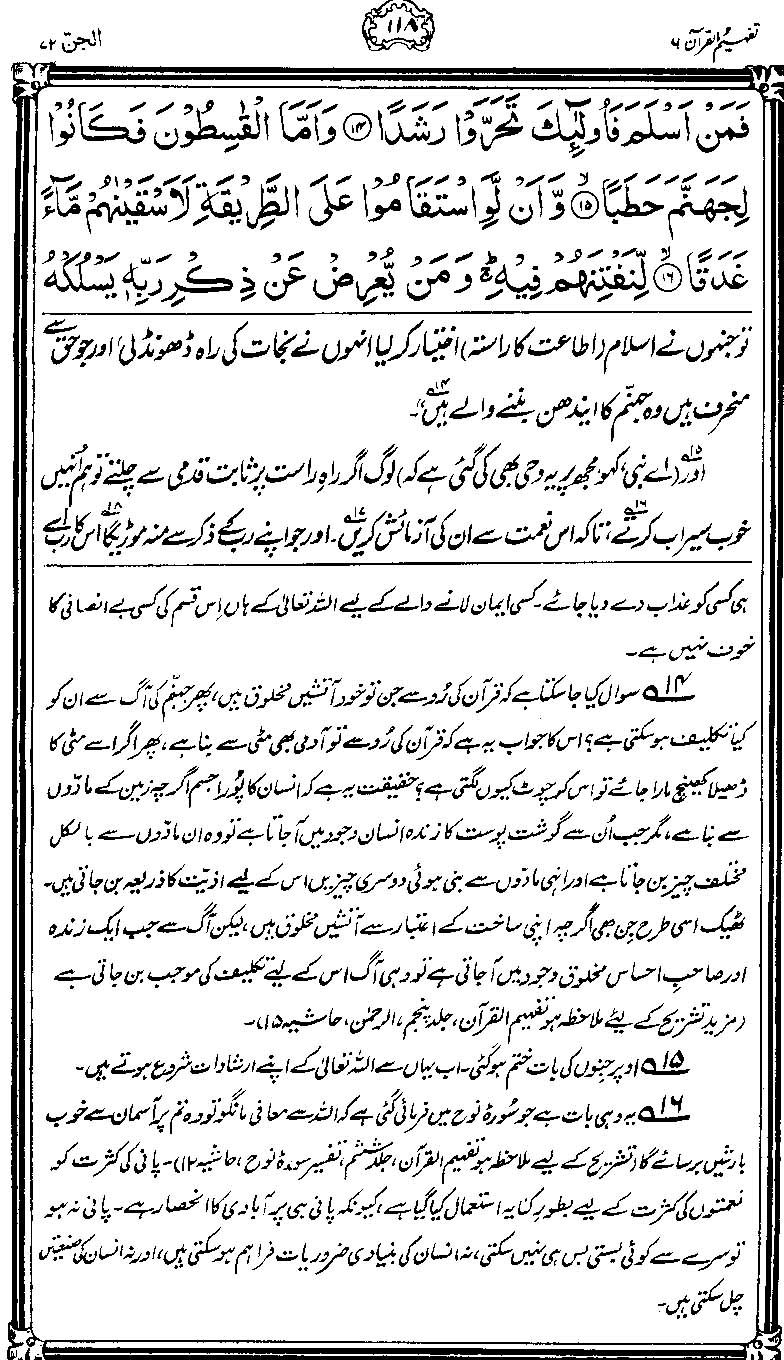 تفہیم القرآن ۶
۱۱۸
الجن ۷۲
فَمَنْ اَسْلَمَ فَاُولٰٓئِكَ تَحَرَّوْا رَشَدًا ۝۱۴ وَاَمَّا الْقٰسِطُوْنَ فَكَانُوْا
لِجَهَنَّمَ حَطَبًا ۝۱۵ۙ وَّاَنْ لَّوِ اسْتَقَامُوْا عَلَى الطَّرِيْقَةِ لَاَسْقَيْنٰهُمْ مَّآءً
غَدَقًا ۝۱۶ۙ لِّنَفْتِنَهُمْ فِيْهِ ؕ وَمَنْ يُّعْرِضْ عَنْ ذِكْرِ رَبِّهٖ يَسْلُكْهُ
تو جنہوں نے اسلام (اطاعت کا راستہ) اختیار کر لیا انہوں نے نجات کی راہ ڈھونڈ لی، اور جو حق سے
منحرف ہیں وہ جہنّم کا ایندھن بننے والے ہیں۱۴"۔
اور۱۵ (اے نبی، کہو مجھ پر یہ وحی بھی کی گئی ہے کہ) لوگ اگر راہِ راست پر ثابت قدمی سے چلتے تو ہم اُنہیں
خوب سیراب کرتے۱۶، تاکہ اس نعمت سے ان کی آزمائش کریں۱۷۔ اور جو اپنے رب کے ذکر سے منہ موڑیگا۱۸ اس کا رب اسے
ہی کسی کو عذاب دے دیا جائے۔ کسی ایمان لانے والے کے لیے اللہ تعالیٰ کے ہاں اِس قسم کی کسی بے انصافی کا
خوف نہیں ہے۔
۱۴؎ سوال کیا جا سکتا ہے کہ قرآن کی رُو سے جن تو خود آتشیں مخلوق ہیں، پھر جہنّم کی آگ سے ان کو
کیا تکلیف ہو سکتی ہے؟ اس کا جواب یہ ہے کہ قرآن کی رُو سے تو آدمی بھی مٹی سے بنا ہے، پھر اگر اسے مٹی کا
ڈھیلا کھینچ مارا جائے تو اس کو چوٹ کیوں لگتی ہے؟ حقیقت یہ ہے کہ انسان کا پُورا جسم اگرچہ زمین کے مادّوں
سے بنا ہے، مگر جب اُن سے گوشت پوست کا زندہ انسان وجود میں آ جاتا ہے تو وہ ان مادّوں سے بالکل
مختلف چیز بن جاتا ہے اور انہی مادّوں سے بنی ہوئی دوسری چیزیں اس کے لیے اذیّت کا ذریعہ بن جاتی ہیں۔
ٹھیک اسی طرح جِن بھی اگرچہ اپنی ساخت کے اعتبار سے آتشیں مخلوق ہیں، لیکن آگ سے جب ایک زندہ
اور صاحبِ احساس مخلوق وجود میں آ جاتی ہے تو وہی آگ اس کے لیے تکلیف کی موجب بن جاتی ہے
(مزید تشریح کے لیے ملاحظہ ہو تفہیم القرآن، جلد پنجم، الرحمٰن، حاشیہ ۱۵)۔
۱۵؎ اوپر جِنوں کی بات ختم ہو گئی۔ اب یہاں سے اللہ تعالیٰ کے اپنے ارشادات شروع ہوتے ہیں۔
۱۶؎ یہ وہی بات ہے جو سُورۂ نوح میں فرمائی گئی ہے کہ اللہ سے معافی مانگو تو وہ تم پر آسمان سے خوب
بارشیں برسائے گا (تشریح کے لیے ملاحظہ ہو تفہیم القرآن، جلد ششم، تفسیر سورۂ نوح، حاشیہ ۱۲)۔ پانی کی کثرت کو
نعمتوں کی کثرت کے لیے بطور کنایہ استعمال کیا گیا ہے، کیونکہ پانی ہی پر آبادی کا انحصار ہے۔ پانی نہ ہو
تو سرے سے کوئی بستی بس ہی نہیں سکتی، نہ انسان کی بنیادی ضروریات فراہم ہو سکتی ہیں، اور نہ انسان کی صنعتیں
چل سکتی ہیں۔